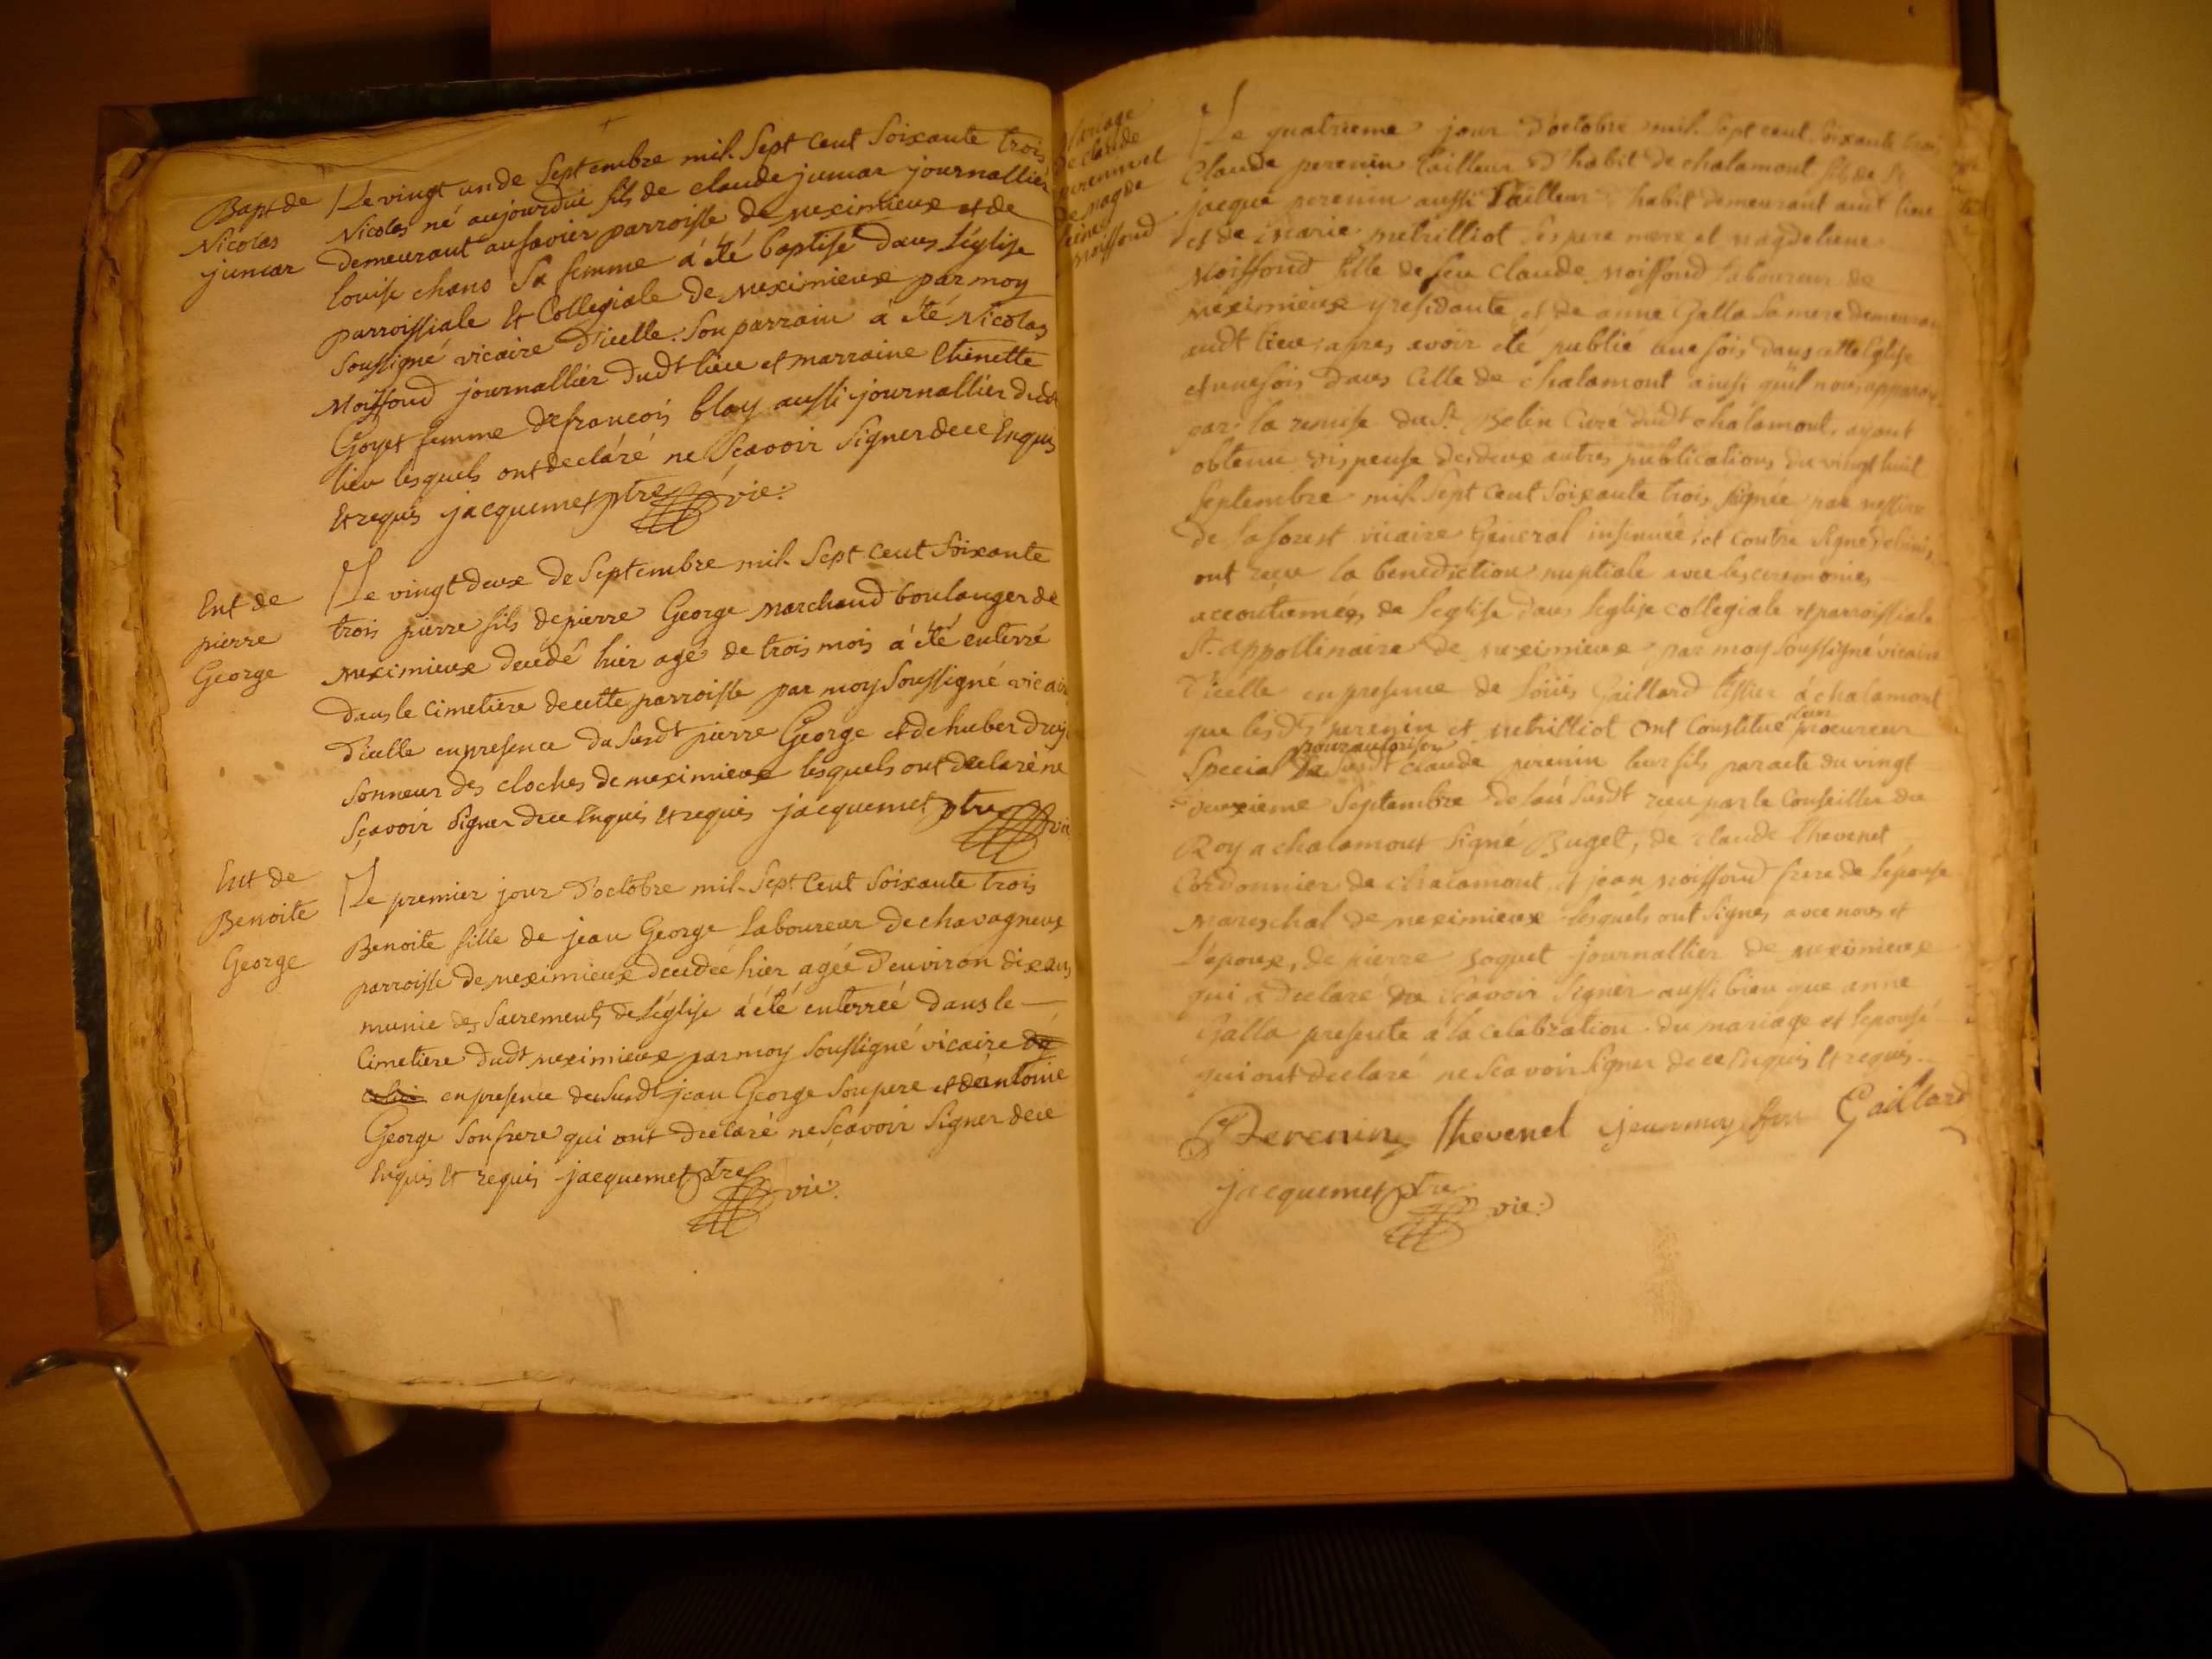 Bapt de
Nicolas
junear
Le vingt un de Septembre mil Sept cent Soixante trois
Nicolas né aujourdui fils de claude junear journallier
demeurant au favier parroisse de meximieux et de
louise chano sa femme á été baptisé dans l'église
parroissiale Et Collegiale de meximieux par moy
soussigné vicaire d'icelle. Son parrain á été Nicolas
Moiffond journallier dudt lieu et marraine thenette
Goyet femme de francois blay aussi journallier dudt
lieu lesquels ont declaré ne Scavoir Signer de ce Enquis
Et requis jacquemet ptre vic:
Ent de
pierre
George
Le vingt deux de Septembre mil Sept cent Soixante
trois pierre fils de pierre George Marchand boulanger de
meximieux decedé hier agé de trois mois á été enterré
dans le cimetiere de cette parroisse par moy Soussigné vicaire
d'icelle en presence du Susdt pierre George et de huber
Sonneur des cloches de meximieux lesquels ont declaré ne
Scavoir Signer de ce Enquis Et requis jacquemet ptre vic
Ent de
Benoite
George
Le premier jour d'octobre mil Sept Cent Soixante trois
Benoite fille de jean George laboureur de chavagneux
parroisse de meximieux decedeé hier ageé d'environ dix ans
munie des Sacrements de l'église á été enterreé dans le
Cimetiere dudt meximieux par moy Soussigné vicaire
en presence du Susdt jean George Son pere et d'antoine
George Son frere qui ont declaré ne Scavoir Signer de ce
Enquis Et requis jacquemet ptre vic:
Mariage
de claude
perenin et
de magde
leine
moiffond
Le quatrieme jour d'octobre mil Sept cent Soixante trois
Claude perenin tailleur d'habit de chalamont fils de
jacque perenin aussi Tailleur d'habit demeurant audt lieu
et de marie metrilliot ses pere mere et magdeleine
Moiffond fille de feu Claude Moiffond laboureur de
meximieux y residante et de anne Galla Sa mere demeurant
audt lieu apres avoir été publié une fois dans cette Eglise
et une fois dans Celle de chalamont ainsi qu'il nous apparoit
par la remise du Sr Belin Curé dudt chalamont, ayant
obtenu dispense des deux autres publications du vingt huit
Septembre mil Sept Cent Soixante trois, Signée par messire
de laforest vicaire General insinuée et contre Signé
ont reçu la benediction nuptiale avec les ceremonies
accoutumées de l'eglise dans l'eglise collegiale et parroissiale
St. appollinaire de meximieux par moy Soussigné vicaire
d'icelle en presence de loüis Gaillard tissier á chalamont
que lesdts perenin et metrilliot ont Constitué leur procureur
Special pour autoriser Susdt claude perenin leur fils par acte du vingt
deuxieme Septembre de l'an Susdt reçu par le Conseiller du
Roy a chalamont Signé Buget, de claude thevenet
Cordonnier de chalamont, et jean Moiffond frere de l'épouse
Mareschal de meximieux lesquels ont Signes avec nous et
L'epoux, de pierre soquet journallier de meximieux
qui a declaré ne Scavoir Signer aussi bien que anne
Galla presente á la celebration du mariage et l'epouse
qui ont declaré ne Scavoir Signer de ce Enquis Et requis.
Perenin thevenet jean moyffon Gaillard
jacquemet ptre vic: